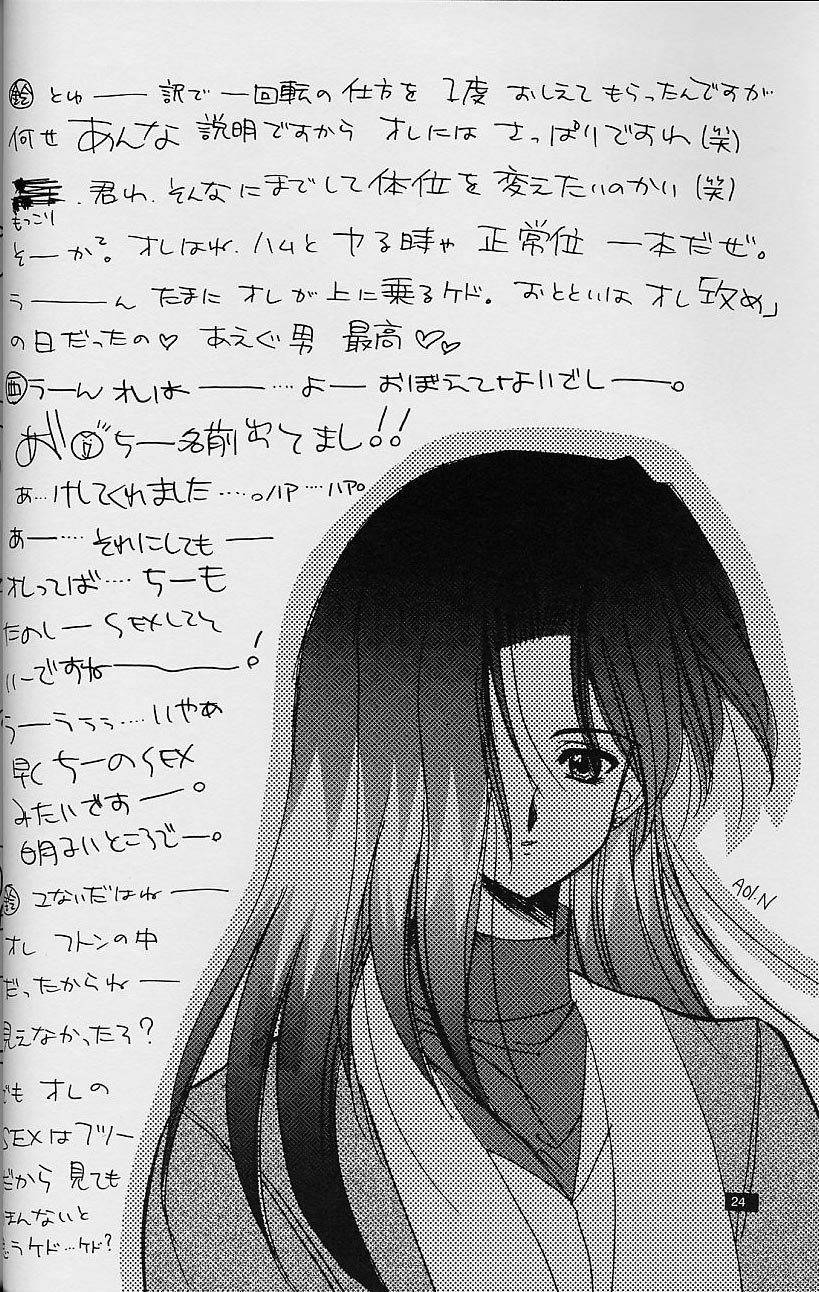 ㊕ とゆ―― 訳で 一回転の 仕方を 1度 おしえて もらったんですが
何せ あんな 説明ですから オレには さっぱりですわ(笑)
. 君わ. そんなにまでして 体位を 変えたいのかい(笑)
もっこり
そーか?。 オレはね. ハムと ヤる時ゃ 正常位 一本だぜ。
う―――ん たまに オレが 上に乗るケド。 おとといは オレ「攻め」
の日だったの♡ あえぐ男 最高♡♡
㊄うーん オレは ――…よー おぼえてないでしー―。
ちー名前出てまし!!
あ…けしてくれました….。ハア…ハア。
あー… それにしても ―
オレってば…. ちーも
たのしー SEXしてて
いーですね―――!
うーううう…. いやあ
早く ちーの SEX
みたいですおー。
明るいところでー。
こないだはねー
オレ フトンの中
だったからねー
見えなかったろ?
でも オレの
SEXはフツー
だから 見ても
まんないと
思うケド…ケド?
AOI.N
24